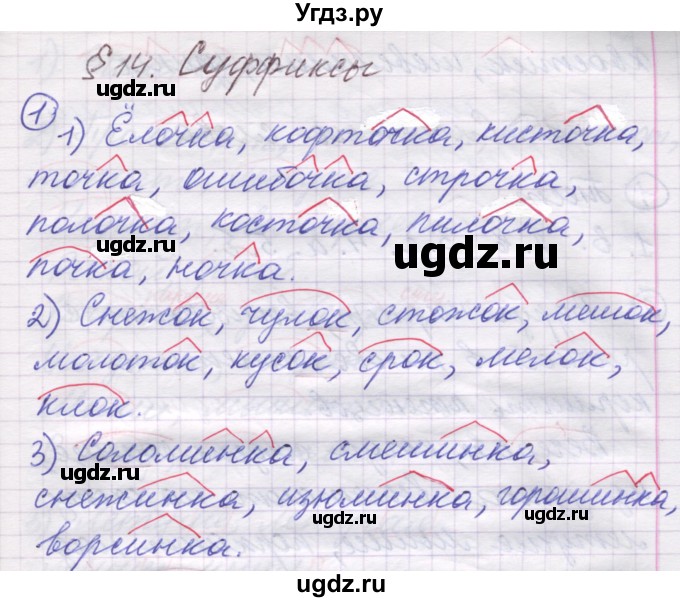 Угдз.ру
§ 14. Суффиксы
1 1) Ёлочка, кофточка, кисточка,
точка, ошибочка, строчка,
полочка, косточка, пилочка,
ugdz.ru
ugdz.ru
почка, ночка.
ugdz.ru
2) Снежок, чулок, стожок, мешок,
молоток, кусок, срок, мелок,
ugdz.ru
ugdz.ru
клок.
3) Соломинка, смешинка,
ugdz.ru
ugdz.ru
снежинка, изюминка, горошинка,
ворсинка.
ugdz.ru